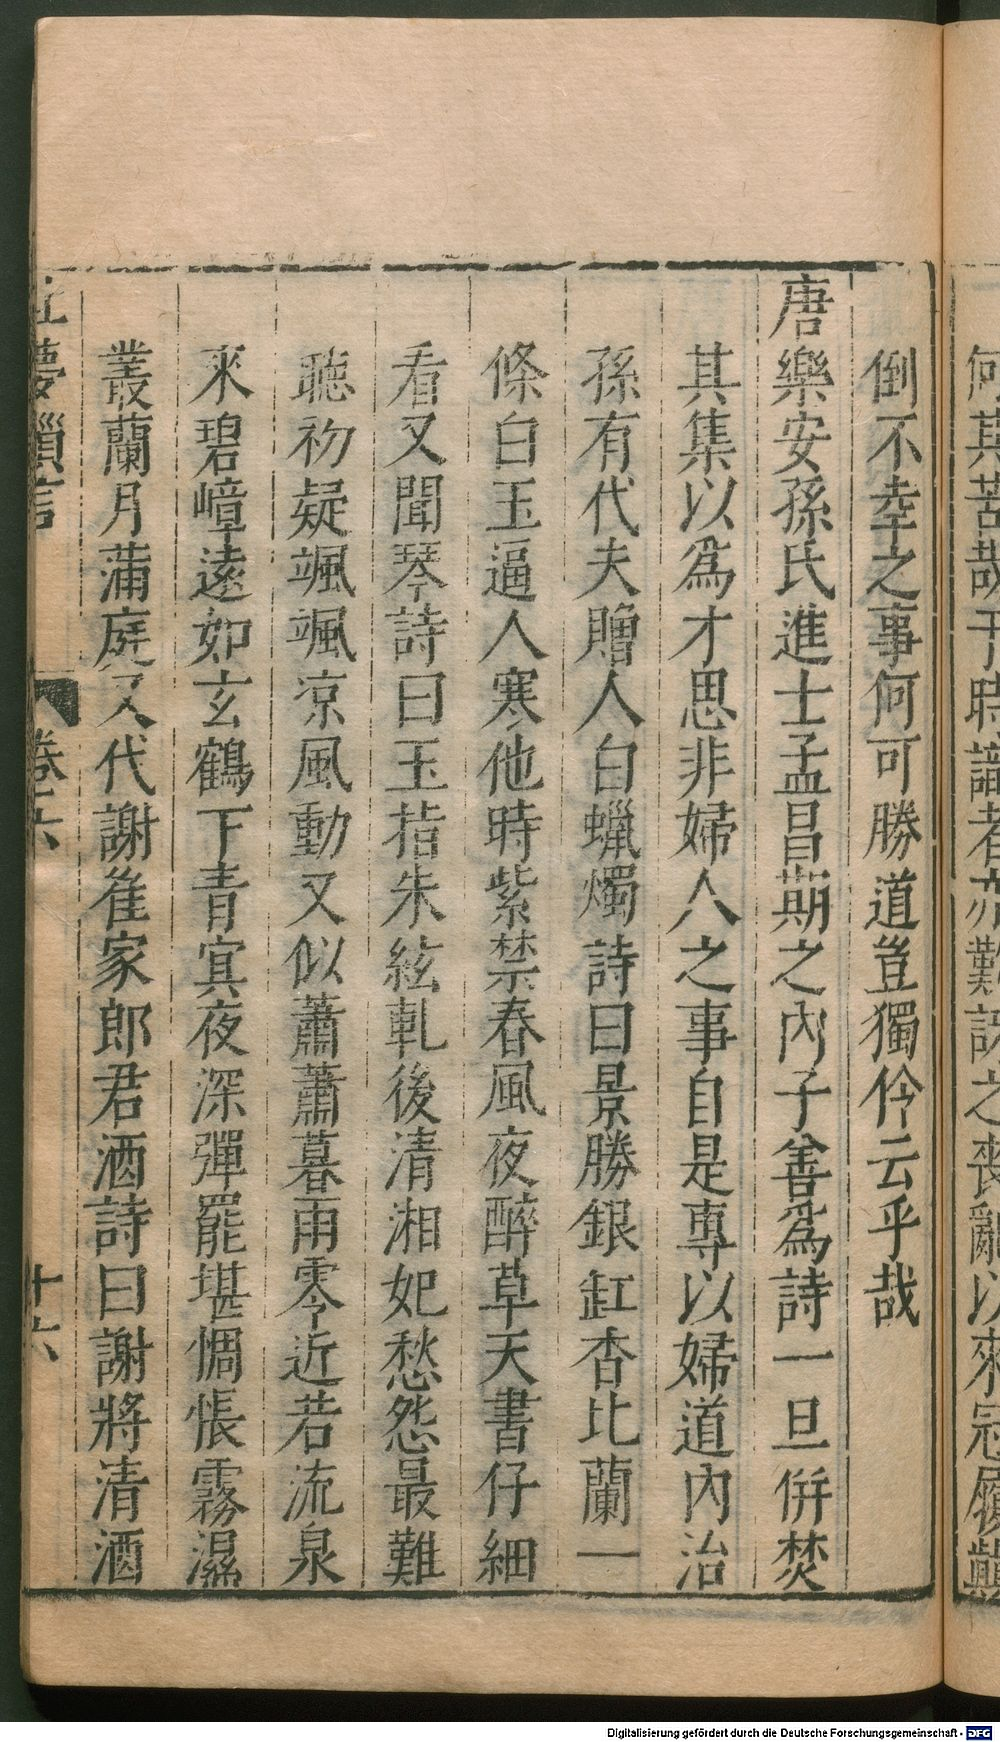 何其苦哉于時識者亦難訝之喪亂以來冠履顛
倒不幸之事何可勝道豈獨伶云乎哉
唐樂安孫氏進士孟昌期之內子善為詩一旦併焚
其集以爲才思非婦人之事自是專以婦道內治
孫有代夫贈人白蠟燭詩曰景勝銀缸杳比蘭一
條白玉逼人寒他時紫禁春風夜醉草天書仔細
看又聞琴詩曰玉指朱絃軋後清湘妃愁怨最難
聽初疑颯颯凉風動又似蕭蕭暮雨零近若流泉
來碧嶂遠如玄鶴下青冥夜深彈罷堪惆悵霧濕
叢蘭月滿庭又代謝崔家郎君酒詩曰謝將清酒
夢瑣言 卷六 十六
Digitalisierung gefördert durch die Deutsche Forschungsgemeinschaft - DFG